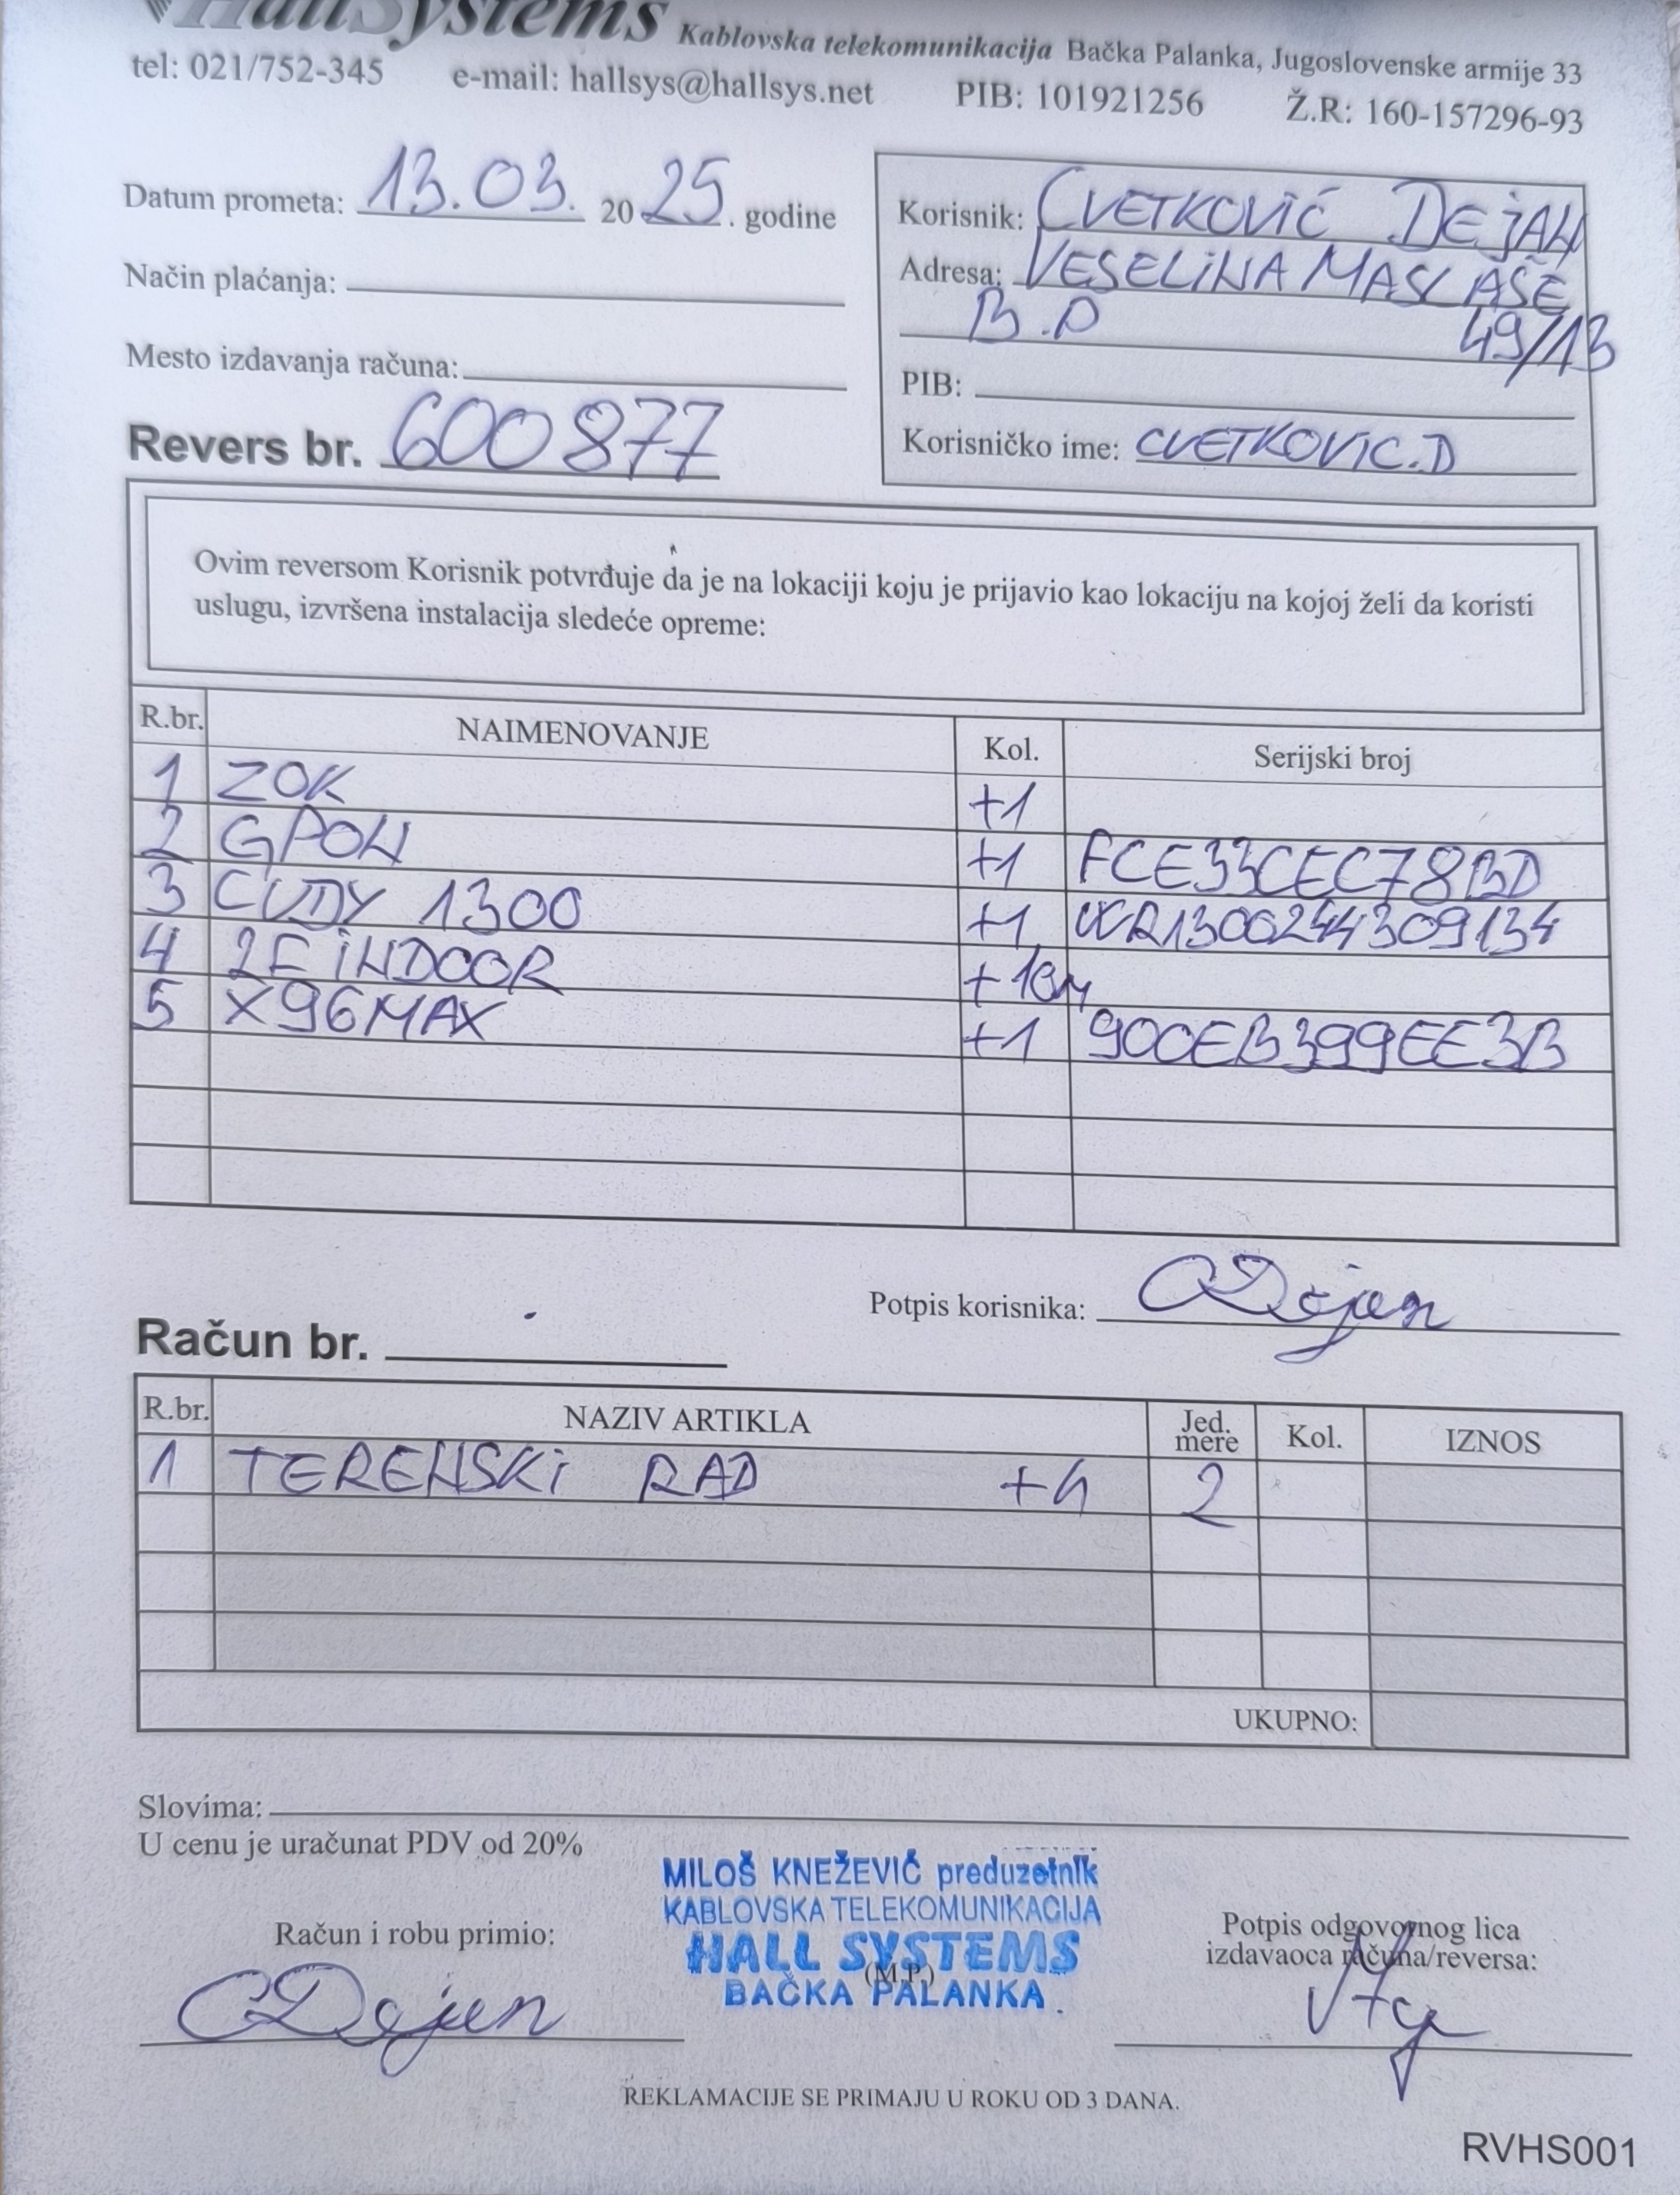 HallSystems Kablovska telekomunikacija Bačka Palanka, Jugoslovenske armije 33
tel: 021/752-345 e-mail: hallsys@hallsys.net PIB: 101921256 Ž.R: 160-157296-93
Datum prometa: 13.03. 2025. godine
Način plaćanja:
Mesto izdavanja računa:
Revers br. 600877
Korisnik: CVETKOVIĆ DEJAN
Adresa: VESELINA MASLAŠE
B.P 49/13
PIB:
Korisničko ime: CVETKOVIC.D
Ovim reversom Korisnik potvrđuje da je na lokaciji koju je prijavio kao lokaciju na kojoj želi da koristi
uslugu, izvršena instalacija sledeće opreme:
R.br. NAIMENOVANJE Kol. Serijski broj
1 ZOK +1
2 GPON +1 FCE33CEC78BD
3 CUDY 1300 +1 WR1300244309134
4 2F INDOOR +10m
5 X96MAX +1 90CEB399EE3B
Potpis korisnika: CDejan
Račun br.
R.br. NAZIV ARTIKLA Jed. mere Kol. IZNOS
1 TERENSKI RAD +4 2
UKUPNO:
Slovima:
U cenu je uračunat PDV od 20%
MILOŠ KNEŽEVIĆ preduzetnik
KABLOVSKA TELEKOMUNIKACIJA
HALL SYSTEMS
(M.P.)
BAČKA PALANKA
Račun i robu primio:
CDejan
Potpis odgovornog lica
izdavaoca računa/reversa:
REKLAMACIJE SE PRIMAJU U ROKU OD 3 DANA.
RVHS001